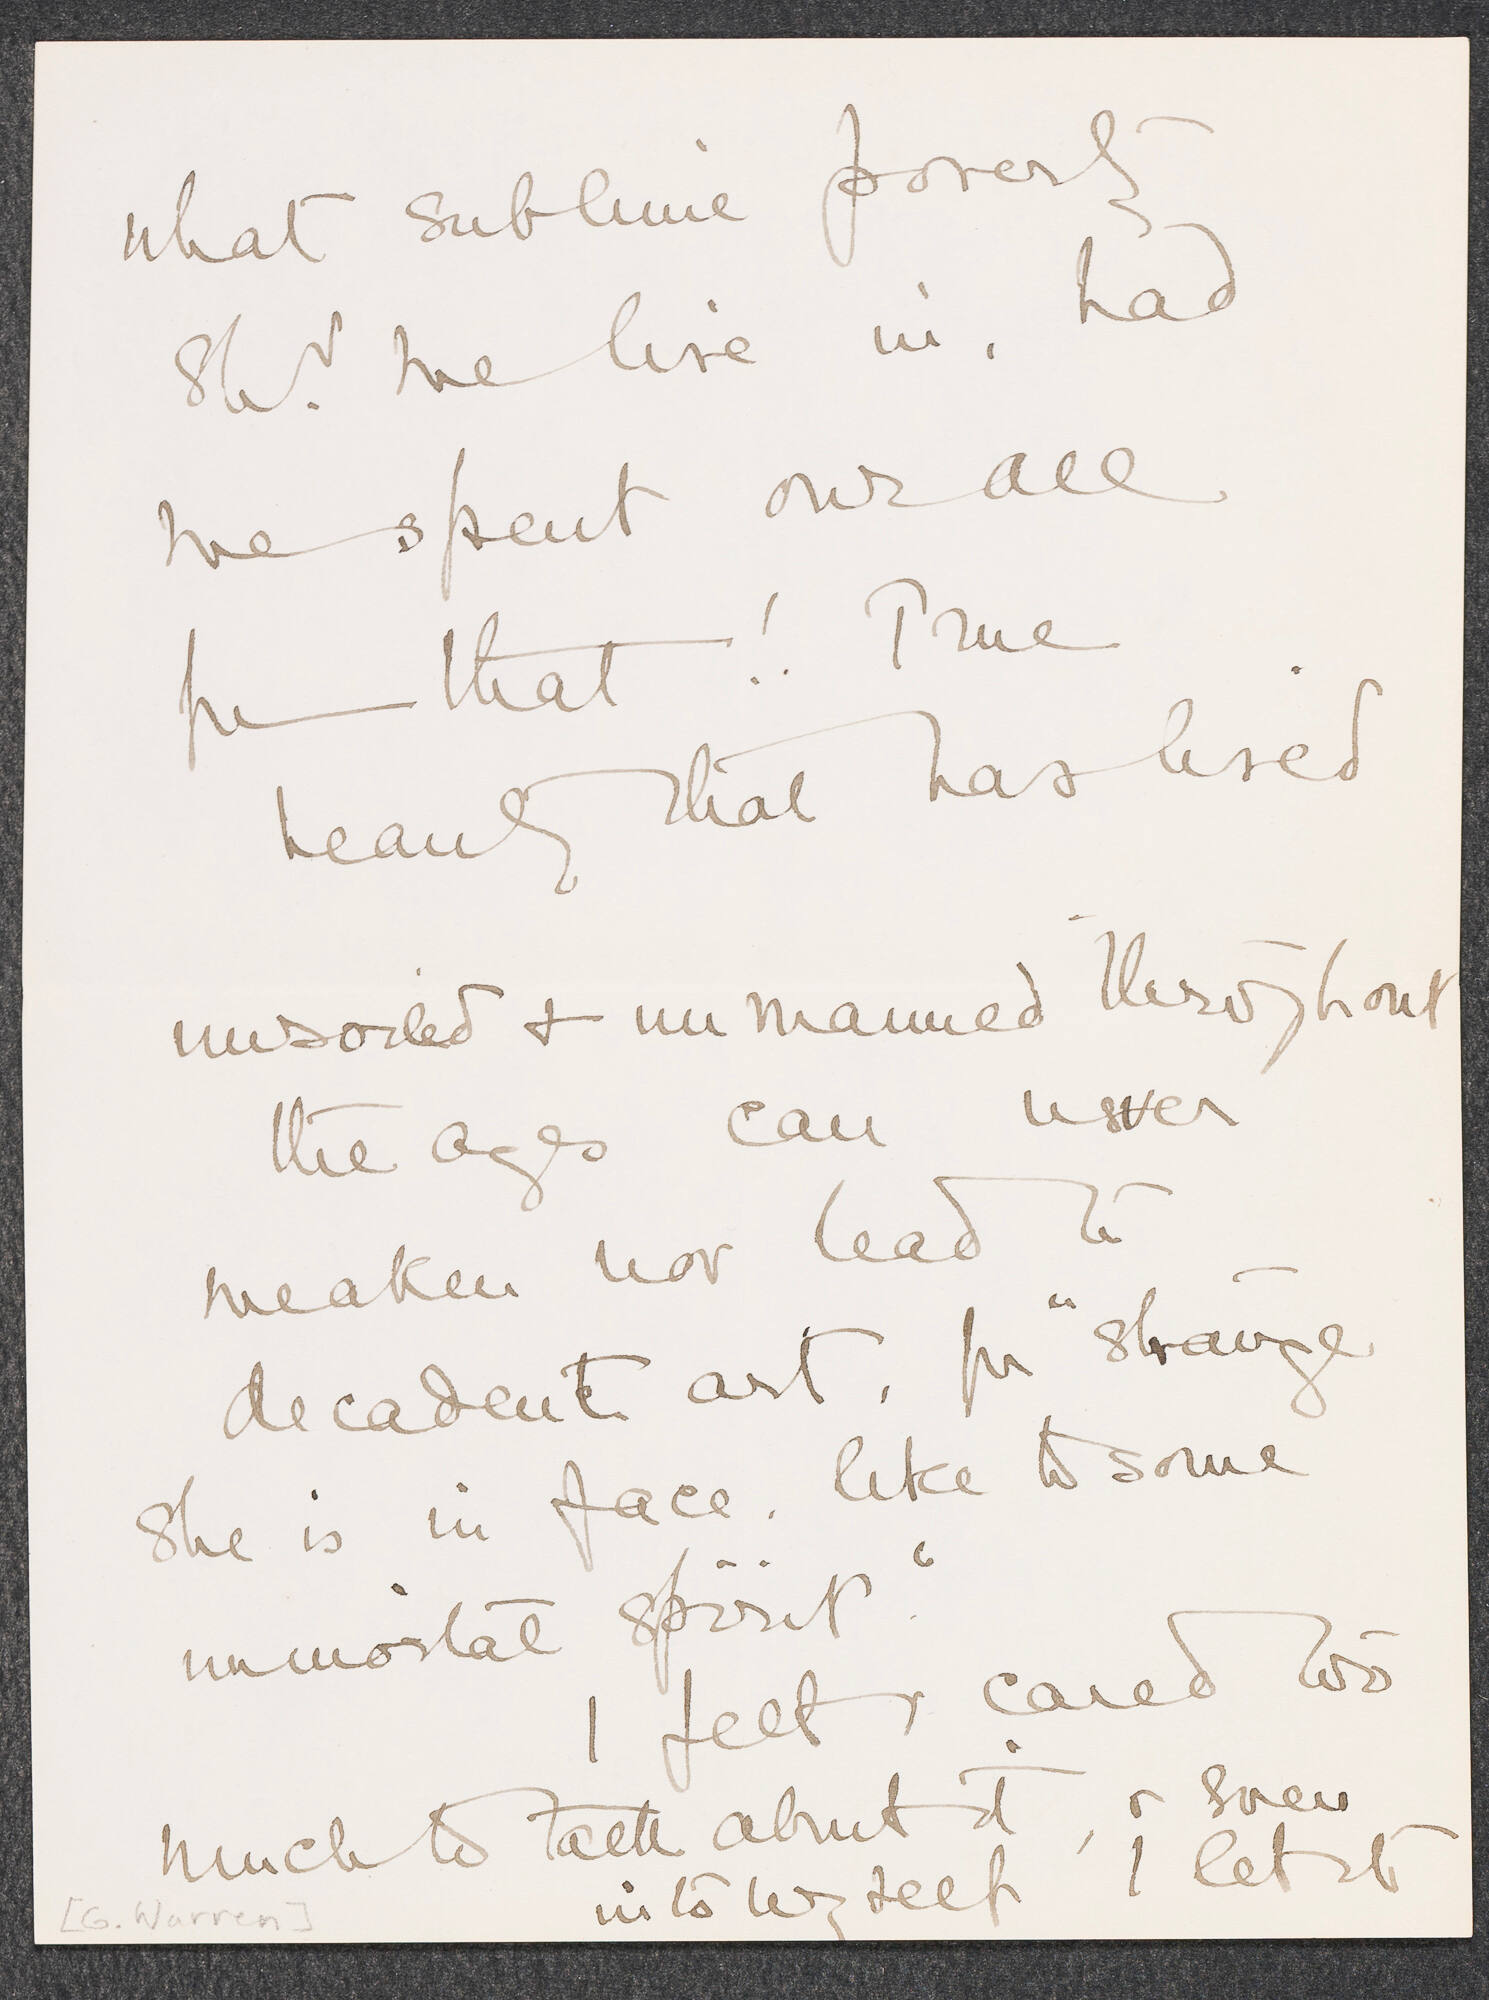 what sublime poverty
shd. we live in, had
we spent our all
for that!! True
beauty that has lived
unsoiled & unmanned throughout
the ages can never
weaken nor lead to
decadent art, for "strange
she is in face, like to some
immortal spirit."
I felt & cared too
much to talk about it, & even
into myself I let it
[G. Warren]